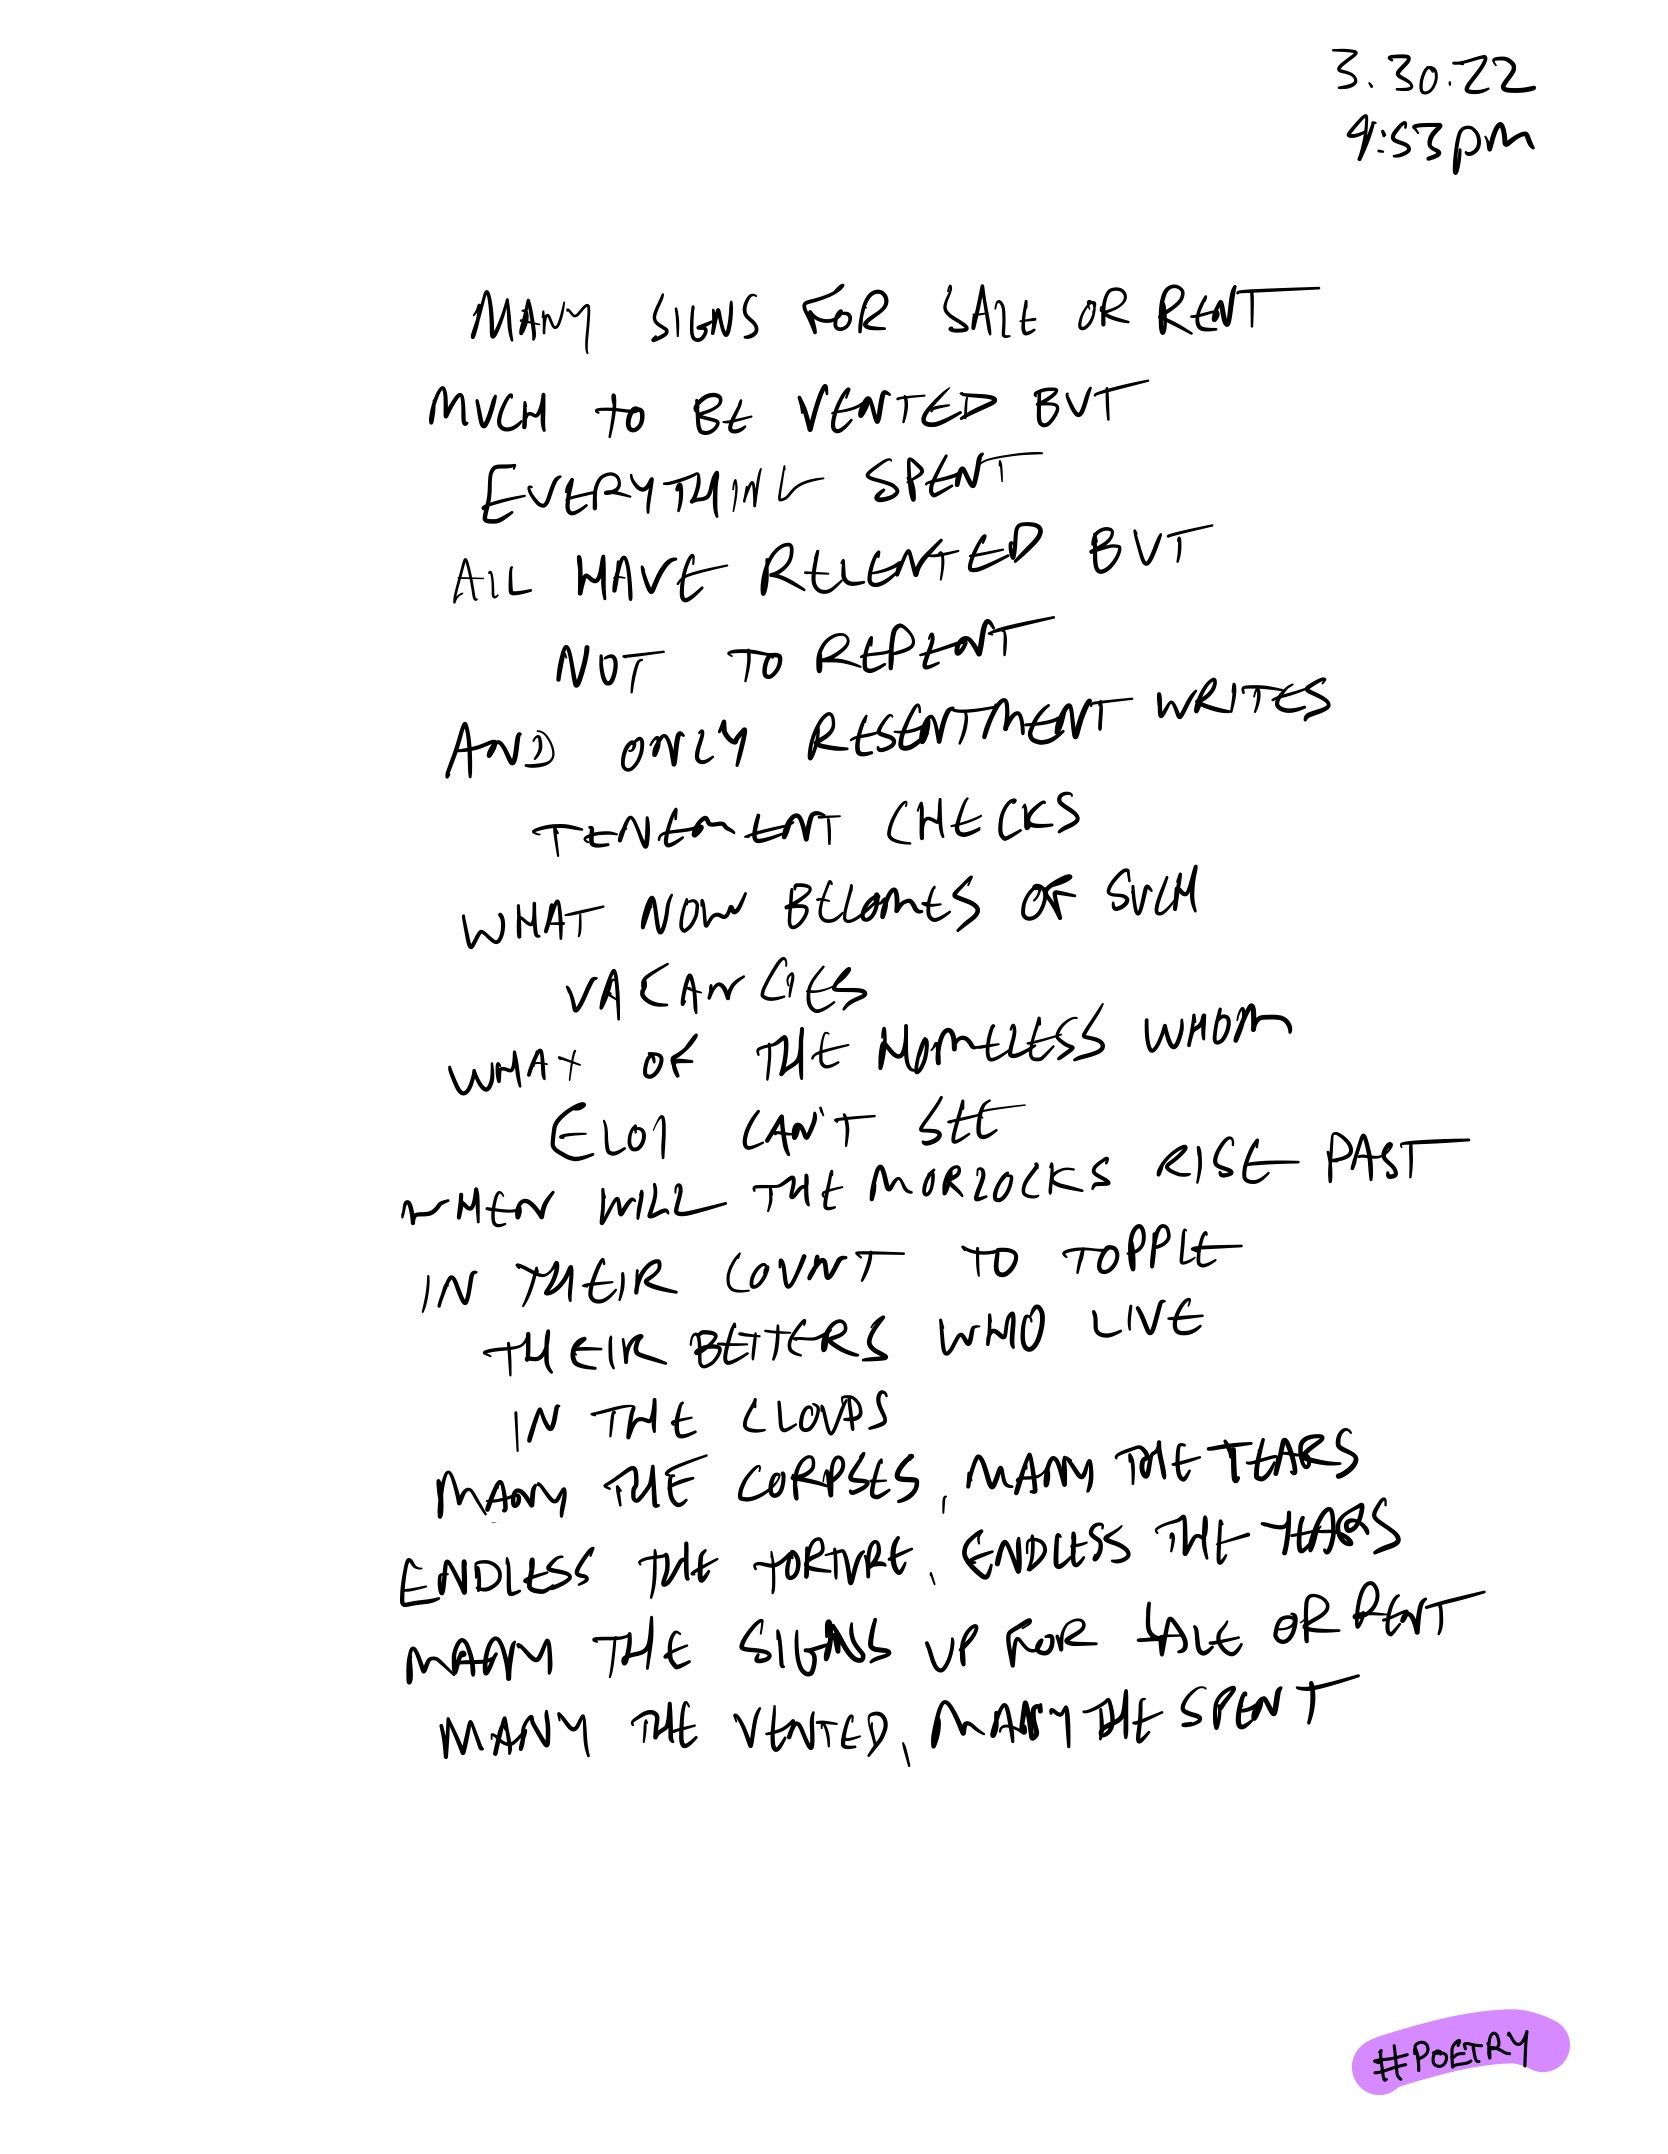 3.30.22
4:53pm
MANY SIGNS FOR SALE OR RENT
MUCH TO BE VENTED BUT
EVERYTHING SPENT
ALL HAVE RELENTED BUT
NOT TO REPENT
AND ONLY RESENTMENT WRITES
TENEMENT CHECKS
WHAT NOW BECOMES OF SUCH
VACANCIES
WHAT OF THE HOMELESS WHOM
ELOI CAN'T SEE
WHEN WILL THE MORLOCKS RISE PAST
IN THEIR COUNT TO TOPPLE
THEIR BETTERS WHO LIVE
IN THE CLOUDS
MANY THE CORPSES, MANY THE TEARS
ENDLESS THE TORTURE, ENDLESS THE YEARS
MANY THE SIGNS UP FOR SALE OR RENT
MANY THE VENTED, MANY THE SPENT
#POETRY